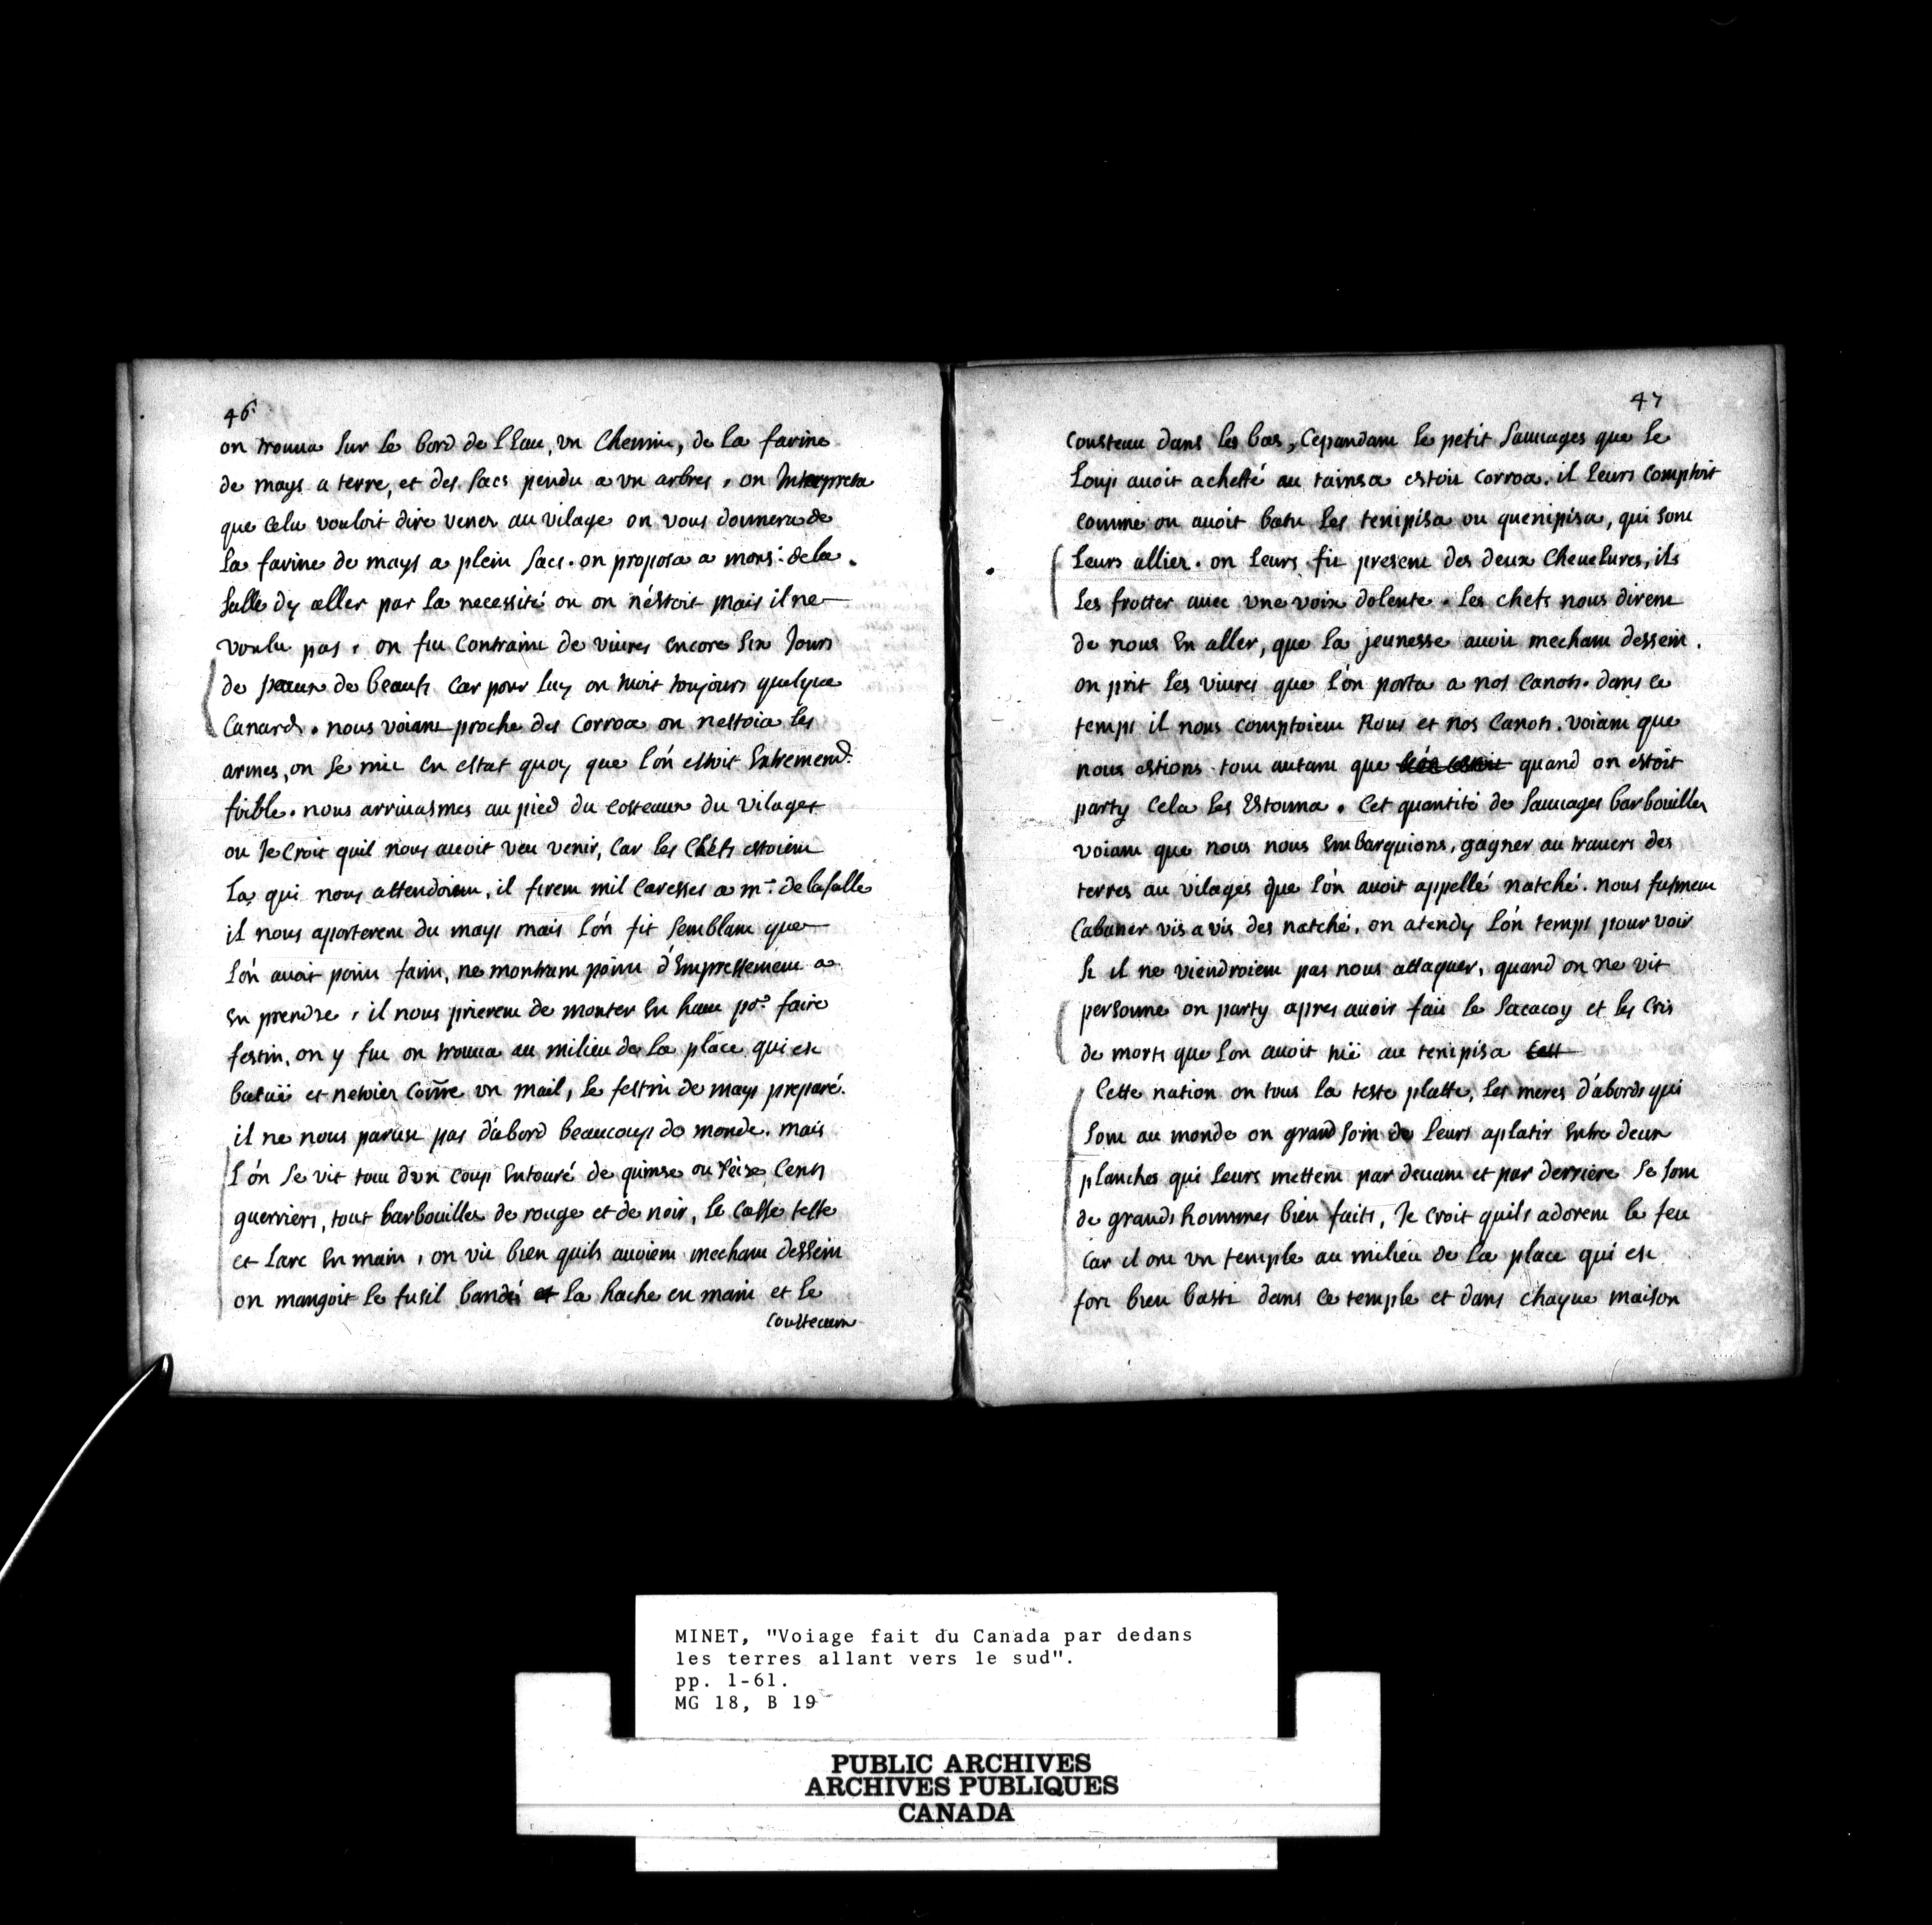 46
on trouua sur le bord de l'Eau, vn Chemin, de la farine
de mays a terre, et des sacs pendu a vn arbres, on Interpreta
que cela vouloit dire vener au vilage on vous donnera de
la farine de mays a plein sacs. on proposa a mons.r de la
salle dy aller par la necessité ou on n'éstoit mais il ne
voulu pas, on fut contraint de viures encore six Jours
de peaux de beaufs car pour luy on tuoit toujours quelque
Canards. nous voiant proche des Corroa on nestoia les
armes, on se mit en estat quoy que l'ón estoit Extremem.t
foible. nous arriuasmes au pied du costeaux du vilages
ou Je Croit quil nous auoit veu venir, Car les Chefs estoient
La qui nous attendoient, il firent mil Caresses a m.r de la salle
il nous aporterent du mays mais l'ón fit semblant que
l'ón auoit point faim, ne montrant point d'Empressement a
en prendre, il nous prierent de monter En haut po.r faire
festin, on y fut on trouua au milieu de la place qui est
batüe et netoier Com̃e vn mail, le festin de mays preparé.
il ne nous paruse pas d'abord beaucoup de monde. mais
l'ón se vit tout d'un coup Entouré de quinse ou seise Cents
guerriers, tout barbouilles de rouge et de noir, le Casse teste
et larc En main, on vit bien quils auoient mechant dessein
on mangoit le fusil bandé et la hache en main et le
Cousteaux
47
Cousteau dans les bas, Cepandant le petit Sauuages que le
Loup auoit achetté au tainsa estoit Corroa. il leurs comptoit
comme on auoit batu les tenipisa ou quenipisa, qui sont
leurs allier. on leurs fit present des deux Cheuelures, ils
les frotter auec vne voix dolente. les chefs nous dirent
de nous En aller, que la jeunesse auoit mechant dessein.
on prit les viures que l'ón porta a nos Canots. dans ce
temps il nous comptoient Nous et nos Canots. voiant que
nous estions tout autant que l'ón estoit quand on estoit
party Cela les Estonna. Cet quantité de Sauuages barbouilles
voiant que nous nous Embarquions, gagner au trauers des
terres au vilages que l'ón auoit appellé natché. nous fusment
Cabaner vis a vis des natché, on atendy l'ón temps pour voir
si il ne viendroient pas nous attaquer, quand on ne vit
personne on party apres auoir fait le sacacoy et les Cris
de morts que l'on auoit tüé au tenipisa Cett
Cette nation on tous la teste platte, les meres d'abords qui
sont au monde on grand soin de leurs aplatir entre deux
planches qui leurs mettent par deuant et par derriere se sont
de grands hommes bien faits, Je Croit quils adorent le feu
Car il ont vn temple au milieu de la place qui est
fort bien basti dans ce temple et dans chaque maison
MINET, "Voiage fait du Canada par dedans
les terres allant vers le sud".
pp. 1-61.
MG 18, B 19
PUBLIC ARCHIVES
ARCHIVES PUBLIQUES
CANADA